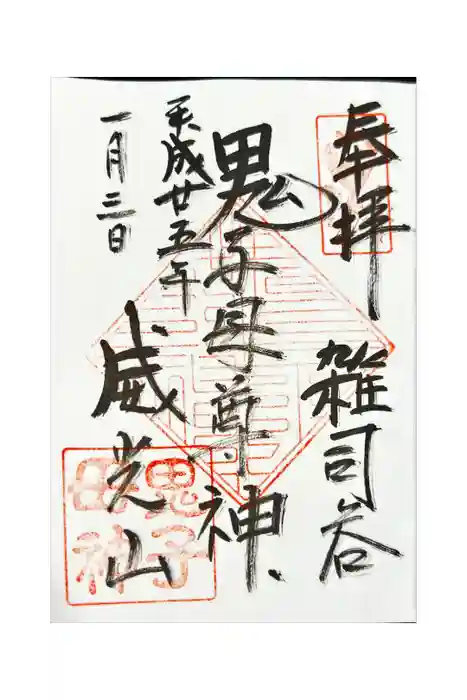 奉拝
雑司谷
鬼子母尊神
平成廿五年
一月三日
威光山
鬼子
母神